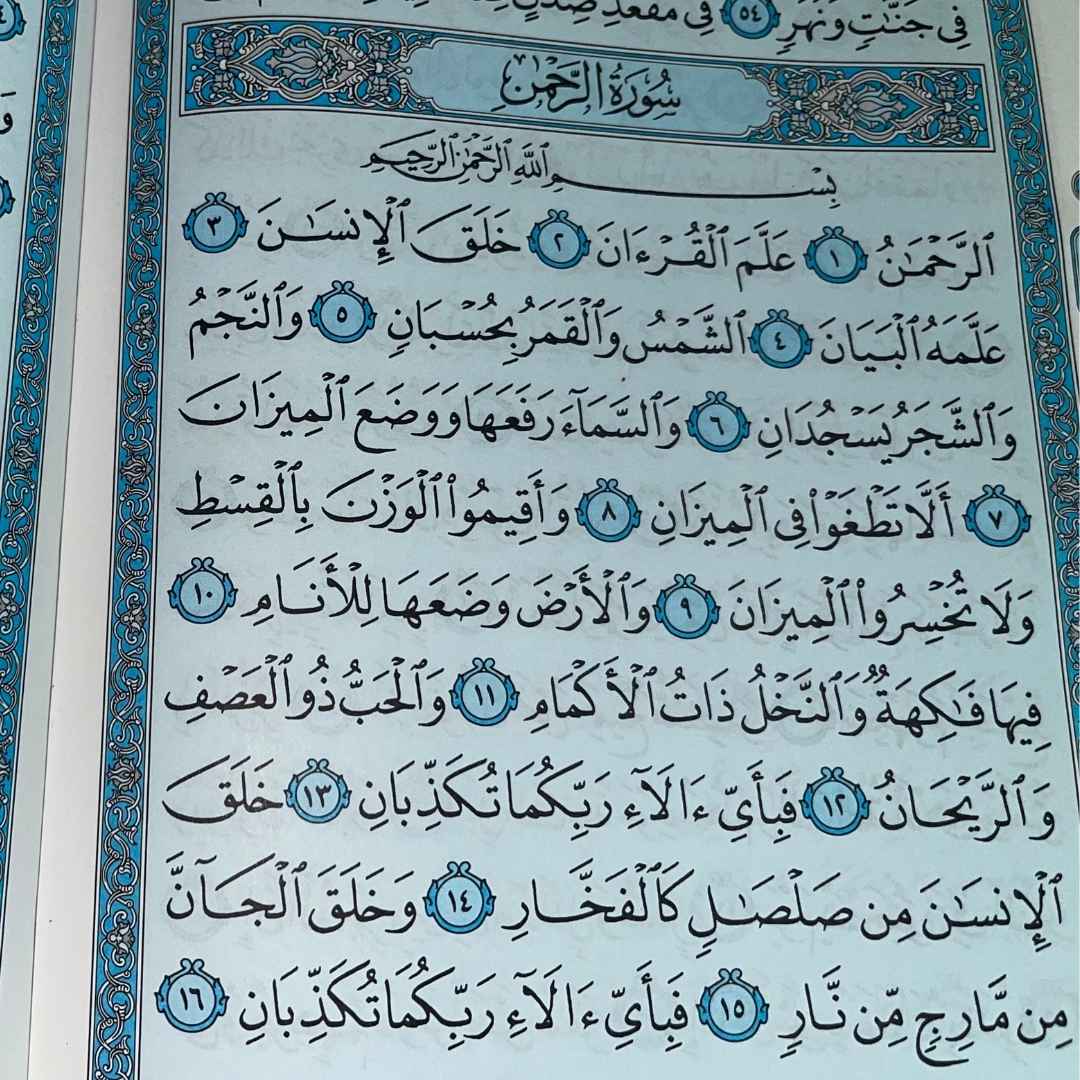 فِي جَنَّٰتٍ وَنَهَرٍ ٥٤ فِي مَقْعَدِ صِدْقٍ
سُورَةُ الرَّحْمَٰن
بِسْمِ ٱللَّهِ ٱلرَّحْمَٰنِ ٱلرَّحِيمِ
ٱلرَّحْمَٰنُ ١ عَلَّمَ ٱلْقُرْءَانَ ٢ خَلَقَ ٱلْإِنسَٰنَ ٣
عَلَّمَهُ ٱلْبَيَانَ ٤ ٱلشَّمْسُ وَٱلْقَمَرُ بِحُسْبَانٍ ٥ وَٱلنَّجْمُ
وَٱلشَّجَرُ يَسْجُدَانِ ٦ وَٱلسَّمَآءَ رَفَعَهَا وَوَضَعَ ٱلْمِيزَانَ
٧ أَلَّا تَطْغَوْا۟ فِي ٱلْمِيزَانِ ٨ وَأَقِيمُوا۟ ٱلْوَزْنَ بِٱلْقِسْطِ
وَلَا تُخْسِرُوا۟ ٱلْمِيزَانَ ٩ وَٱلْأَرْضَ وَضَعَهَا لِلْأَنَامِ ١٠
فِيهَا فَٰكِهَةٌ وَٱلنَّخْلُ ذَاتُ ٱلْأَكْمَامِ ١١ وَٱلْحَبُّ ذُو ٱلْعَصْفِ
وَٱلرَّيْحَانُ ١٢ فَبِأَيِّ ءَالَآءِ رَبِّكُمَا تُكَذِّبَانِ ١٣ خَلَقَ
ٱلْإِنسَٰنَ مِن صَلْصَٰلٍ كَٱلْفَخَّارِ ١٤ وَخَلَقَ ٱلْجَآنَّ
مِن مَّارِجٍ مِّن نَّارٍ ١٥ فَبِأَيِّ ءَالَآءِ رَبِّكُمَا تُكَذِّبَانِ ١٦